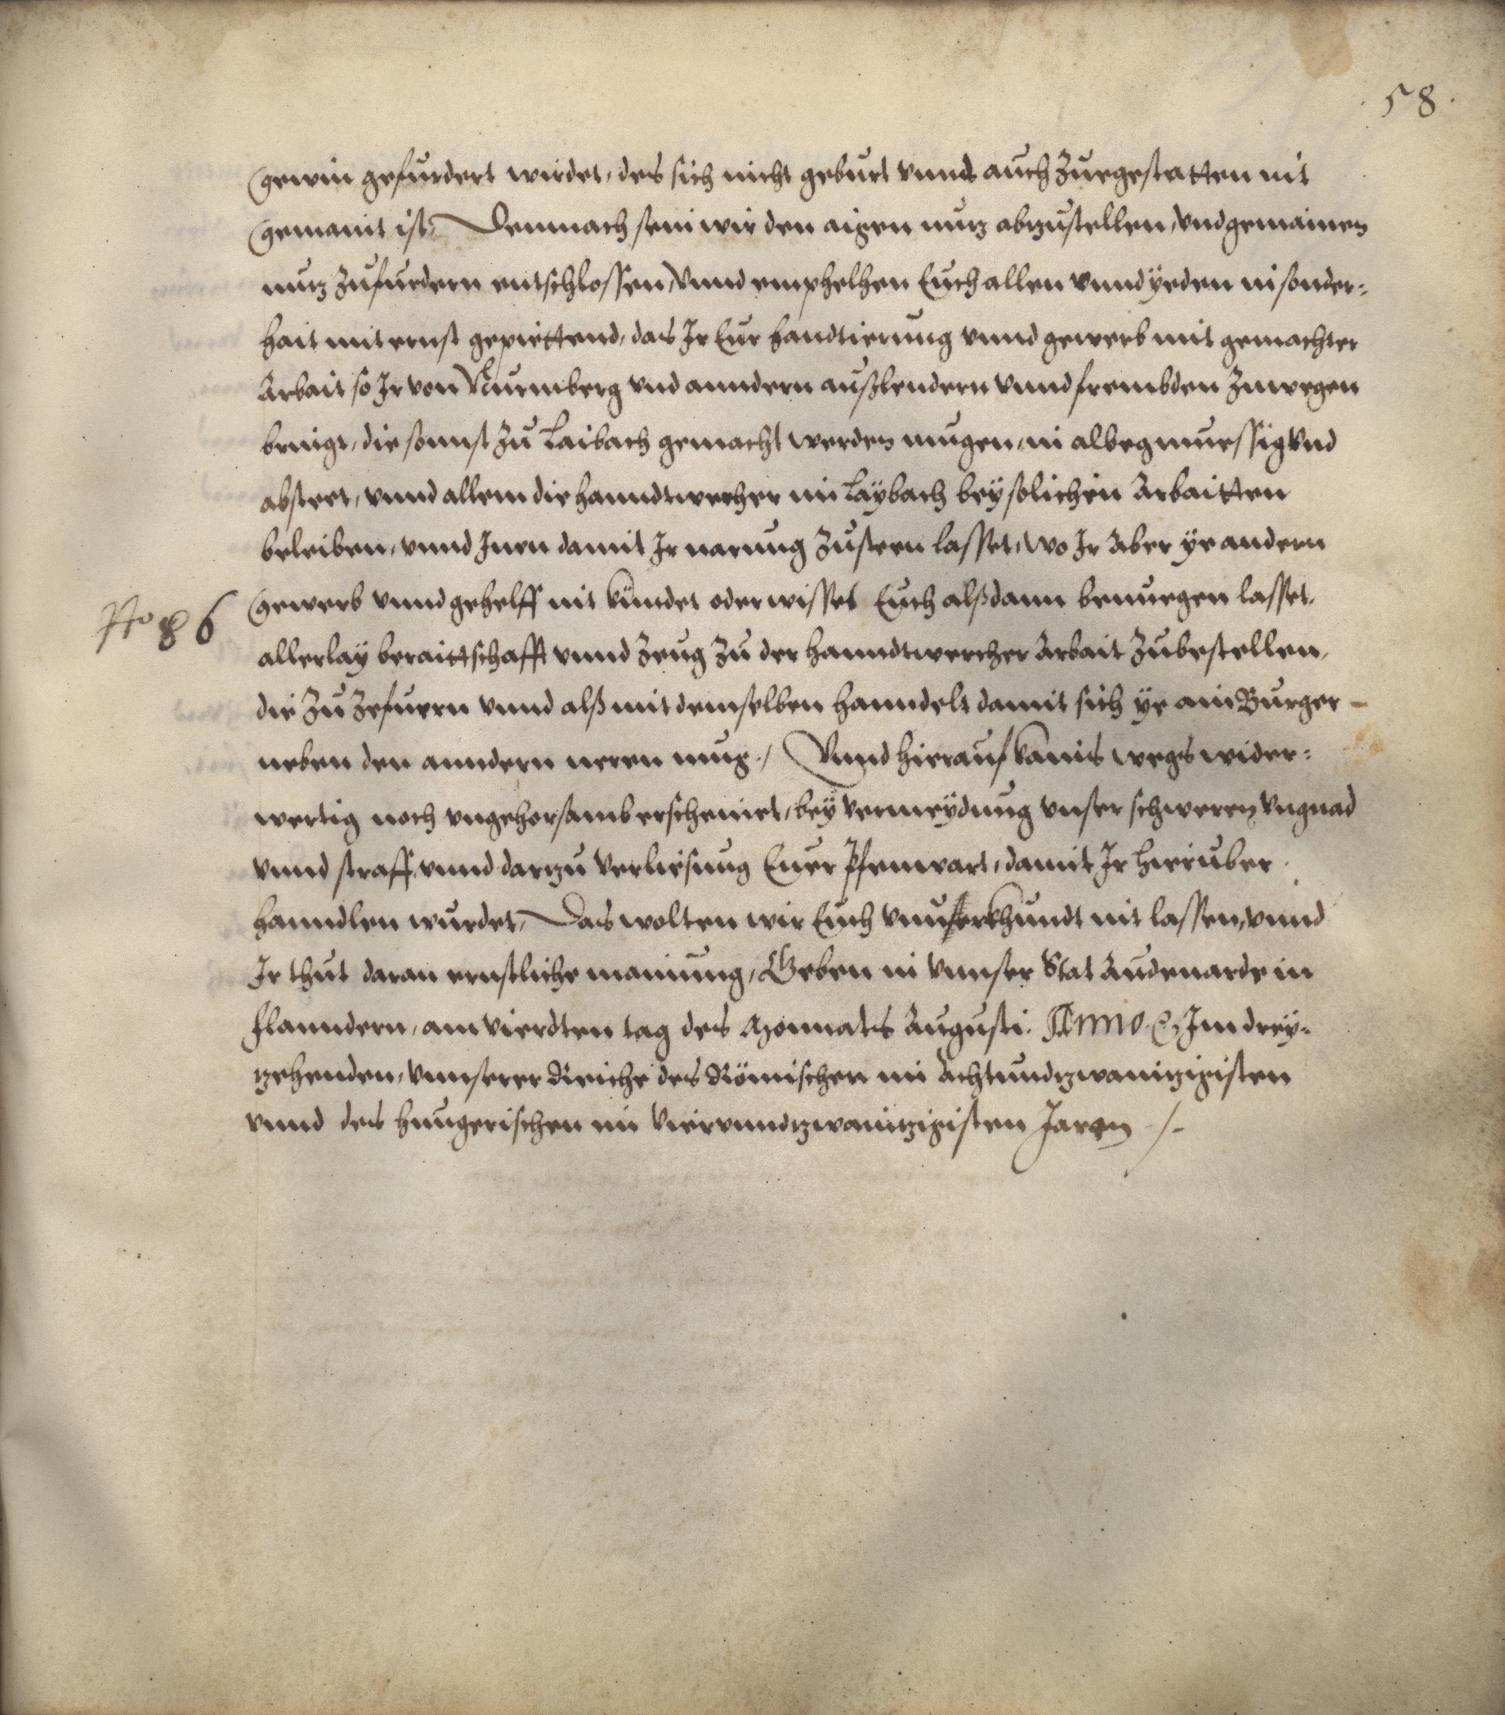 58.
gewin gefurdert wirdet, des sich nicht geburt vnnd auch Zuegestatten nit
gemaint ist, Demnach sein wir den aigen nutz abzustellen, vnd gemainen
nutz Zufurdern entschlossen, Vnnd emphelhen Euch allen vnnd yeden in sonder-
hait mit ernst gepiettend, das Ir Eur handtierung vnnd gewerb mit gemachter
Arbait so Ir von Nurmberg vnd anndern außlendern vnnd frembden Zuwegen
bringt, die sonnst Zu Laibach gemacht werden mugen, in albeg muessig vnd
absteet, vnnd allein die hanndtwercher in Laybach bey solichen Arbaitten
beleiben, vnnd Inen damit Ir narung Zusteen lasset, Wo Ir Aber ye andern
gewerb vnnd gehelff nit kundet oder wisset Euch alßdann benuegen lasset,
No 86
allerlay beraittschafft vnnd Zeug Zu der hanndtwercher Arbait Zubestellen,
die Zu Zefuern vnnd alß mit demselben hanndelt damit sich ye ain Burger
neben den anndern neren mug./ Vnnd hierauf kains wegs wider-
wertig noch vngehorsamb erscheinet, bey vermeydung vnser schweren vngnad
vnnd straff, vnnd darzu Verliesung Euer Pfenwart, damit Ir hieruber
hanndlen wurdet, Das wolten wir Euch vnuerkhundt nit lassen, vnnd
Ir thut daran ernstliche mainung, Geben in vnnser Stat Audenarde in
flanndern, am vierdten tag des Monnats Augusti. Anno &c Im drey-
zehenden, vnnserer Reiche des Römischen im Achtundzwaintzigisten
vnnd des hungerischen im Viervnndzwaintzigisten Jaren ./.